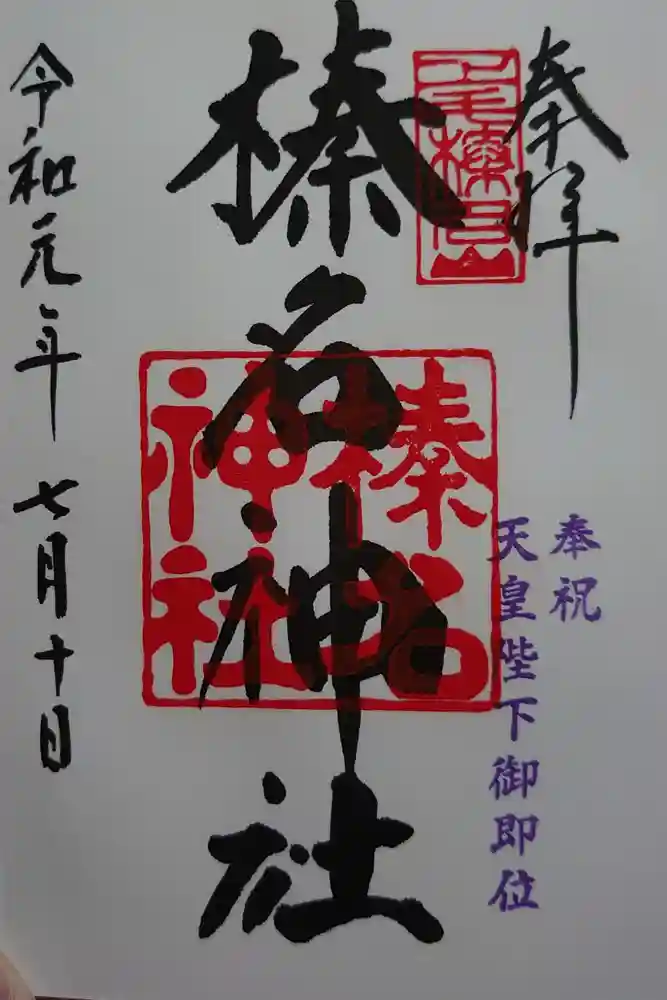 奉拝
上毛榛名山
奉祝
天皇陛下御即位
榛名神社
榛名
神社
令和元年 七月十日